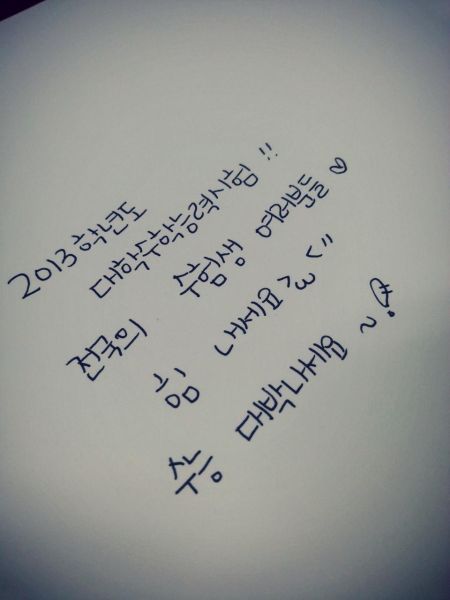 2013학년도
대학수학능력시험 !!
전국의 수험생 여러분들 ♡
힘 내세요 >3<"
수능 대박나세요 ~